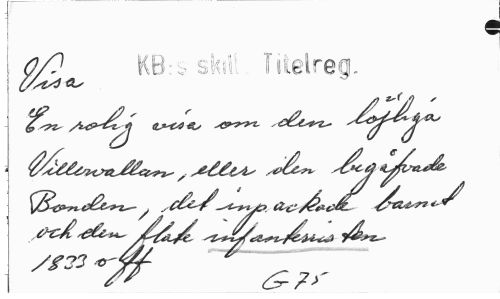 KB:s skill. Titelreg.
Visa
En rolig visa om den löjliga
Villervallan, eller den begåfvade
Bonden, det inpackade barnet
och den flate infanteristen
1833 o ff
G 75